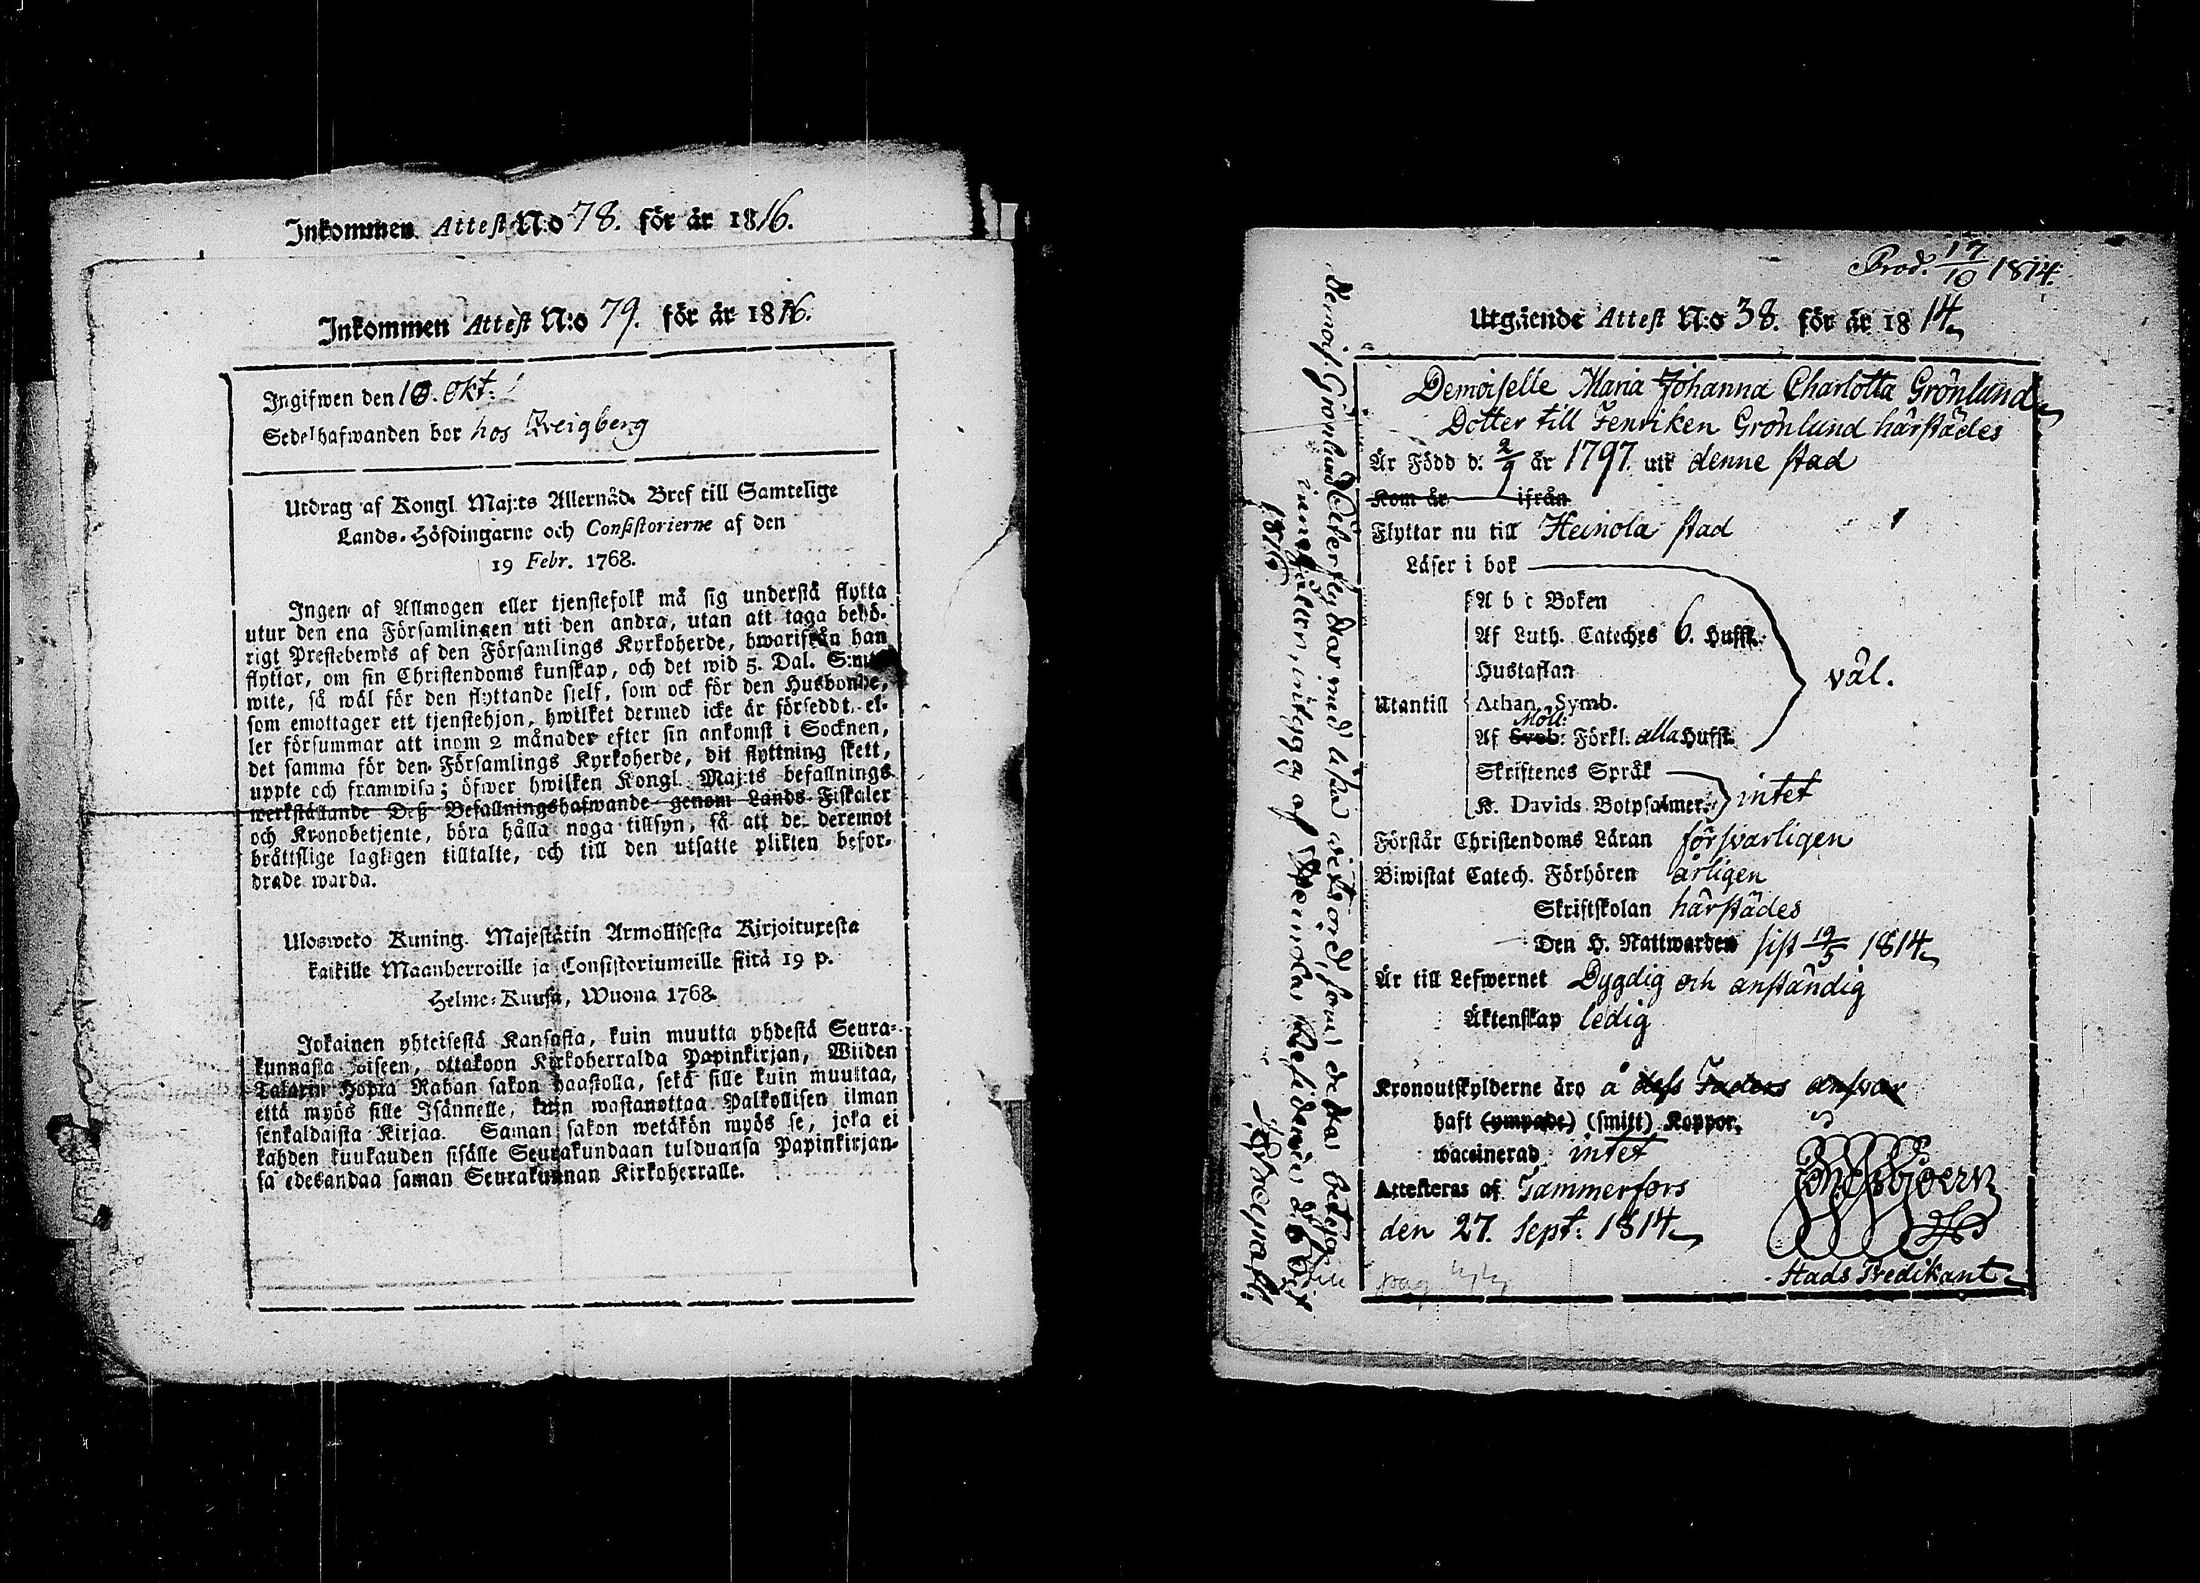 Inkommen Attest N:o 78. för år 1816.
Inkommen Attest N:o 79. för år 1816.
Ingifwen den 18. Okt:
Sedelhafwanden bor hos
Utdrag af Kongl. Maj:ts Allernåd. Bref till Samtelige
Lands-Höfdingarne och Consistorierne af den
19 Febr. 1768.
Ingen af Allmogen eller tjenstefolk må sig understå flytta
utur den ena Församlingen uti den andra, utan att taga behö-
rigt Prestebewis af den Församlings Kyrkoherde, hwarifrån han
flyttar, om sin Christendoms kunskap, och det wid 5. Dal. S:mts
wite, så wäl för den flyttande sjelf, som ock för den Husbonde,
som emottager ett tjenstehjon, hwilket dermed icke är försedt, el-
ler försummar att inom 2 månader efter sin ankomst i Socknen,
det samma för den Församlings Kyrkoherde, dit flyttning skett,
uppte och framwisa; öfwer hwilken Kongl. Maj:ts befallnings
werkställande Deß Befallningshafwande genom Lands-Fiskaler
och Kronobetjente, böra hålla noga tillsyn, så att de deremot
bråttslige lagligen tilltalte, och till den utsatte plikten befor-
drade warda.
Ulosweto Kuning. Majestätin Armollisesta Kirjoituxesta
kaikille Maanherroille ja Consistoriumeille siitä 19 p.
Helme-Kuusa, Wuona 1768.
Jokainen yhteisestä Kansasta, kuin muutta yhdestä Seura-
kunnasta toiseen, ottakoon Kirkoherralda Papinkirjan, Wiiden
Talarin Hopia Rahan sakon haastolla, sekä sille kuin muuttaa,
että myös sille Isännelle, kuin wastanottaa Palkollisen ilman
senkaldaista Kirjaa. Saman sakon wetäkön myös se, joka ei
kahden kuukauden sisälle Seurakundaan tulduansa Papinkirjan-
sa edesandaa saman Seurakunnan Kirkoherralle.
Prod. 17/10 1814.
Utgäende Attest N:o 38. för år 1814
Demoiselle Maria Johanna Charlotta Grönlund
Dotter till Fenriken Grönlund härstädes
Är Född d. 2/9 år 1797. uti denne stad
Kom år ifrån
Flyttar nu till Heinola stad
Läser i bok
A b c Boken
Af Luth. Cateches 6. Hufst.
Hustaflan
Utantill Athan. Symb. väl.
Möll:
Af Sveb: Förkl. alla Hufst.
Skriftenes Språk
K. Davids Botpsalmer. intet
Förstår Christendoms Läran försvarligen
Biwistat Catech. Förhören årligen
Skriftskolan härstädes
Den H. Nattwarden sist 19/5 1814
Är till Lefwernet Dygdig och anständig
Äktenskap ledig
Kronoutskylderne äro å dess Faders ansvar
haft (ympade) (smitt) Koppor,
waccinerad intet
Attesteras af Tammerfors
den 27. Sept: 1814
Stads Predikant
Demois. Grönlund återflyttar med lika witsord, som detta betyg
innehåller, intygas af Heinola Residence d. 6
1816.